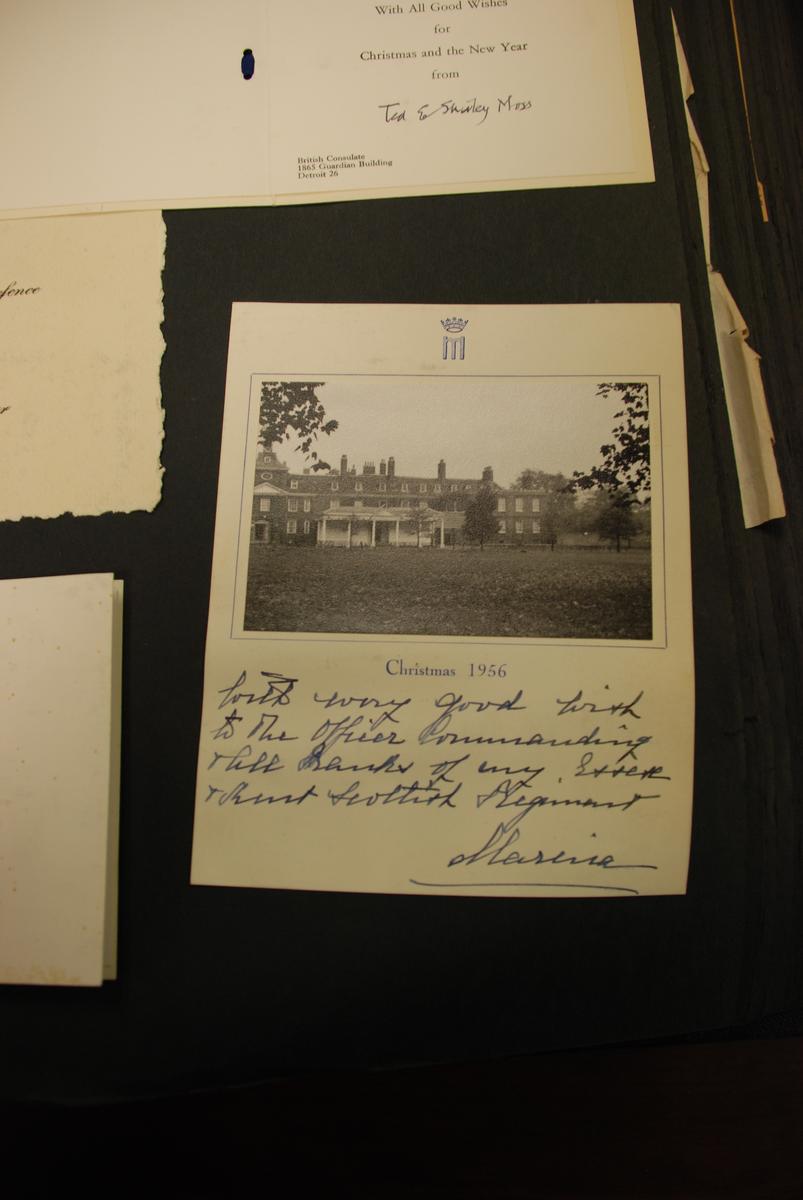 With All Good Wishes
for
Christmas and the New Year
from
Ted & Shirley Moss
British Consulate
1865 Guardian Building
Detroit 26
M
Christmas 1956
With every good wish
to the Officer Commanding
& all Ranks of my Essex
& Kent Scottish Regiment
Marina